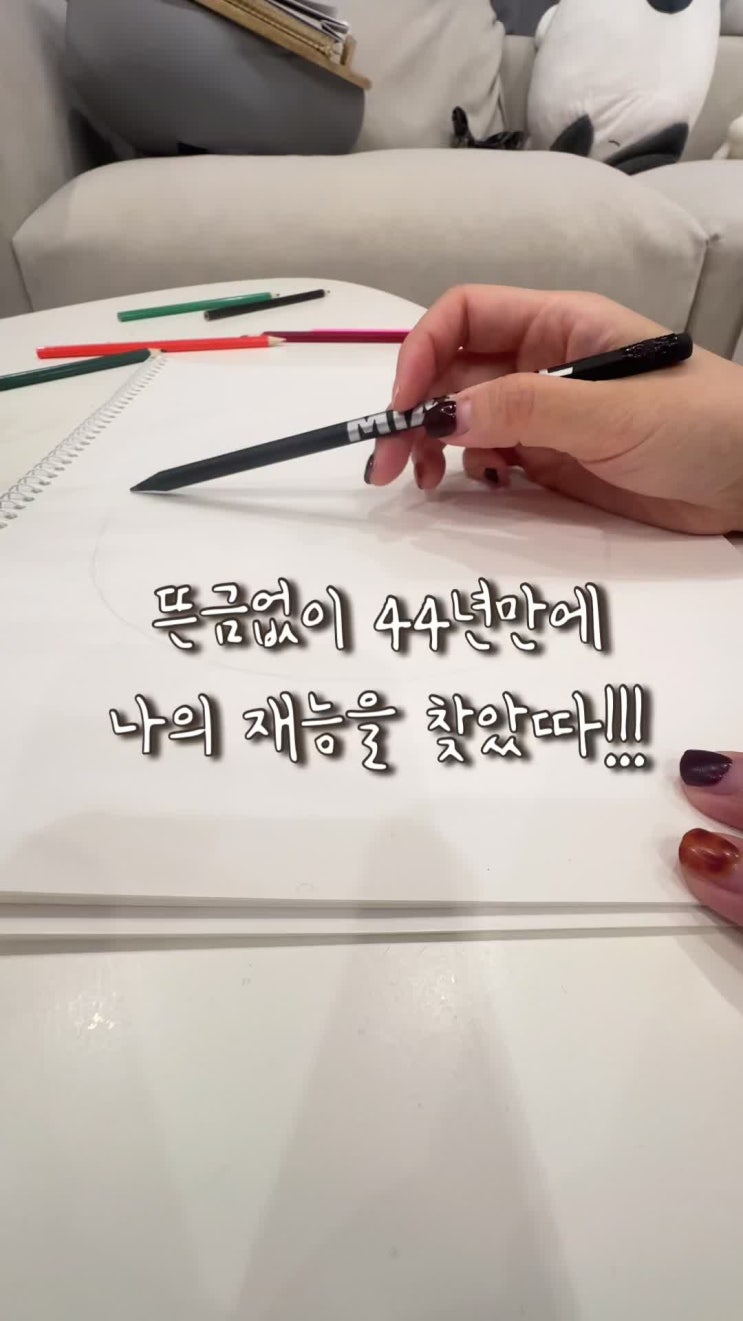 뜬금없이 44년만에
나의 재능을 찾았따!!!